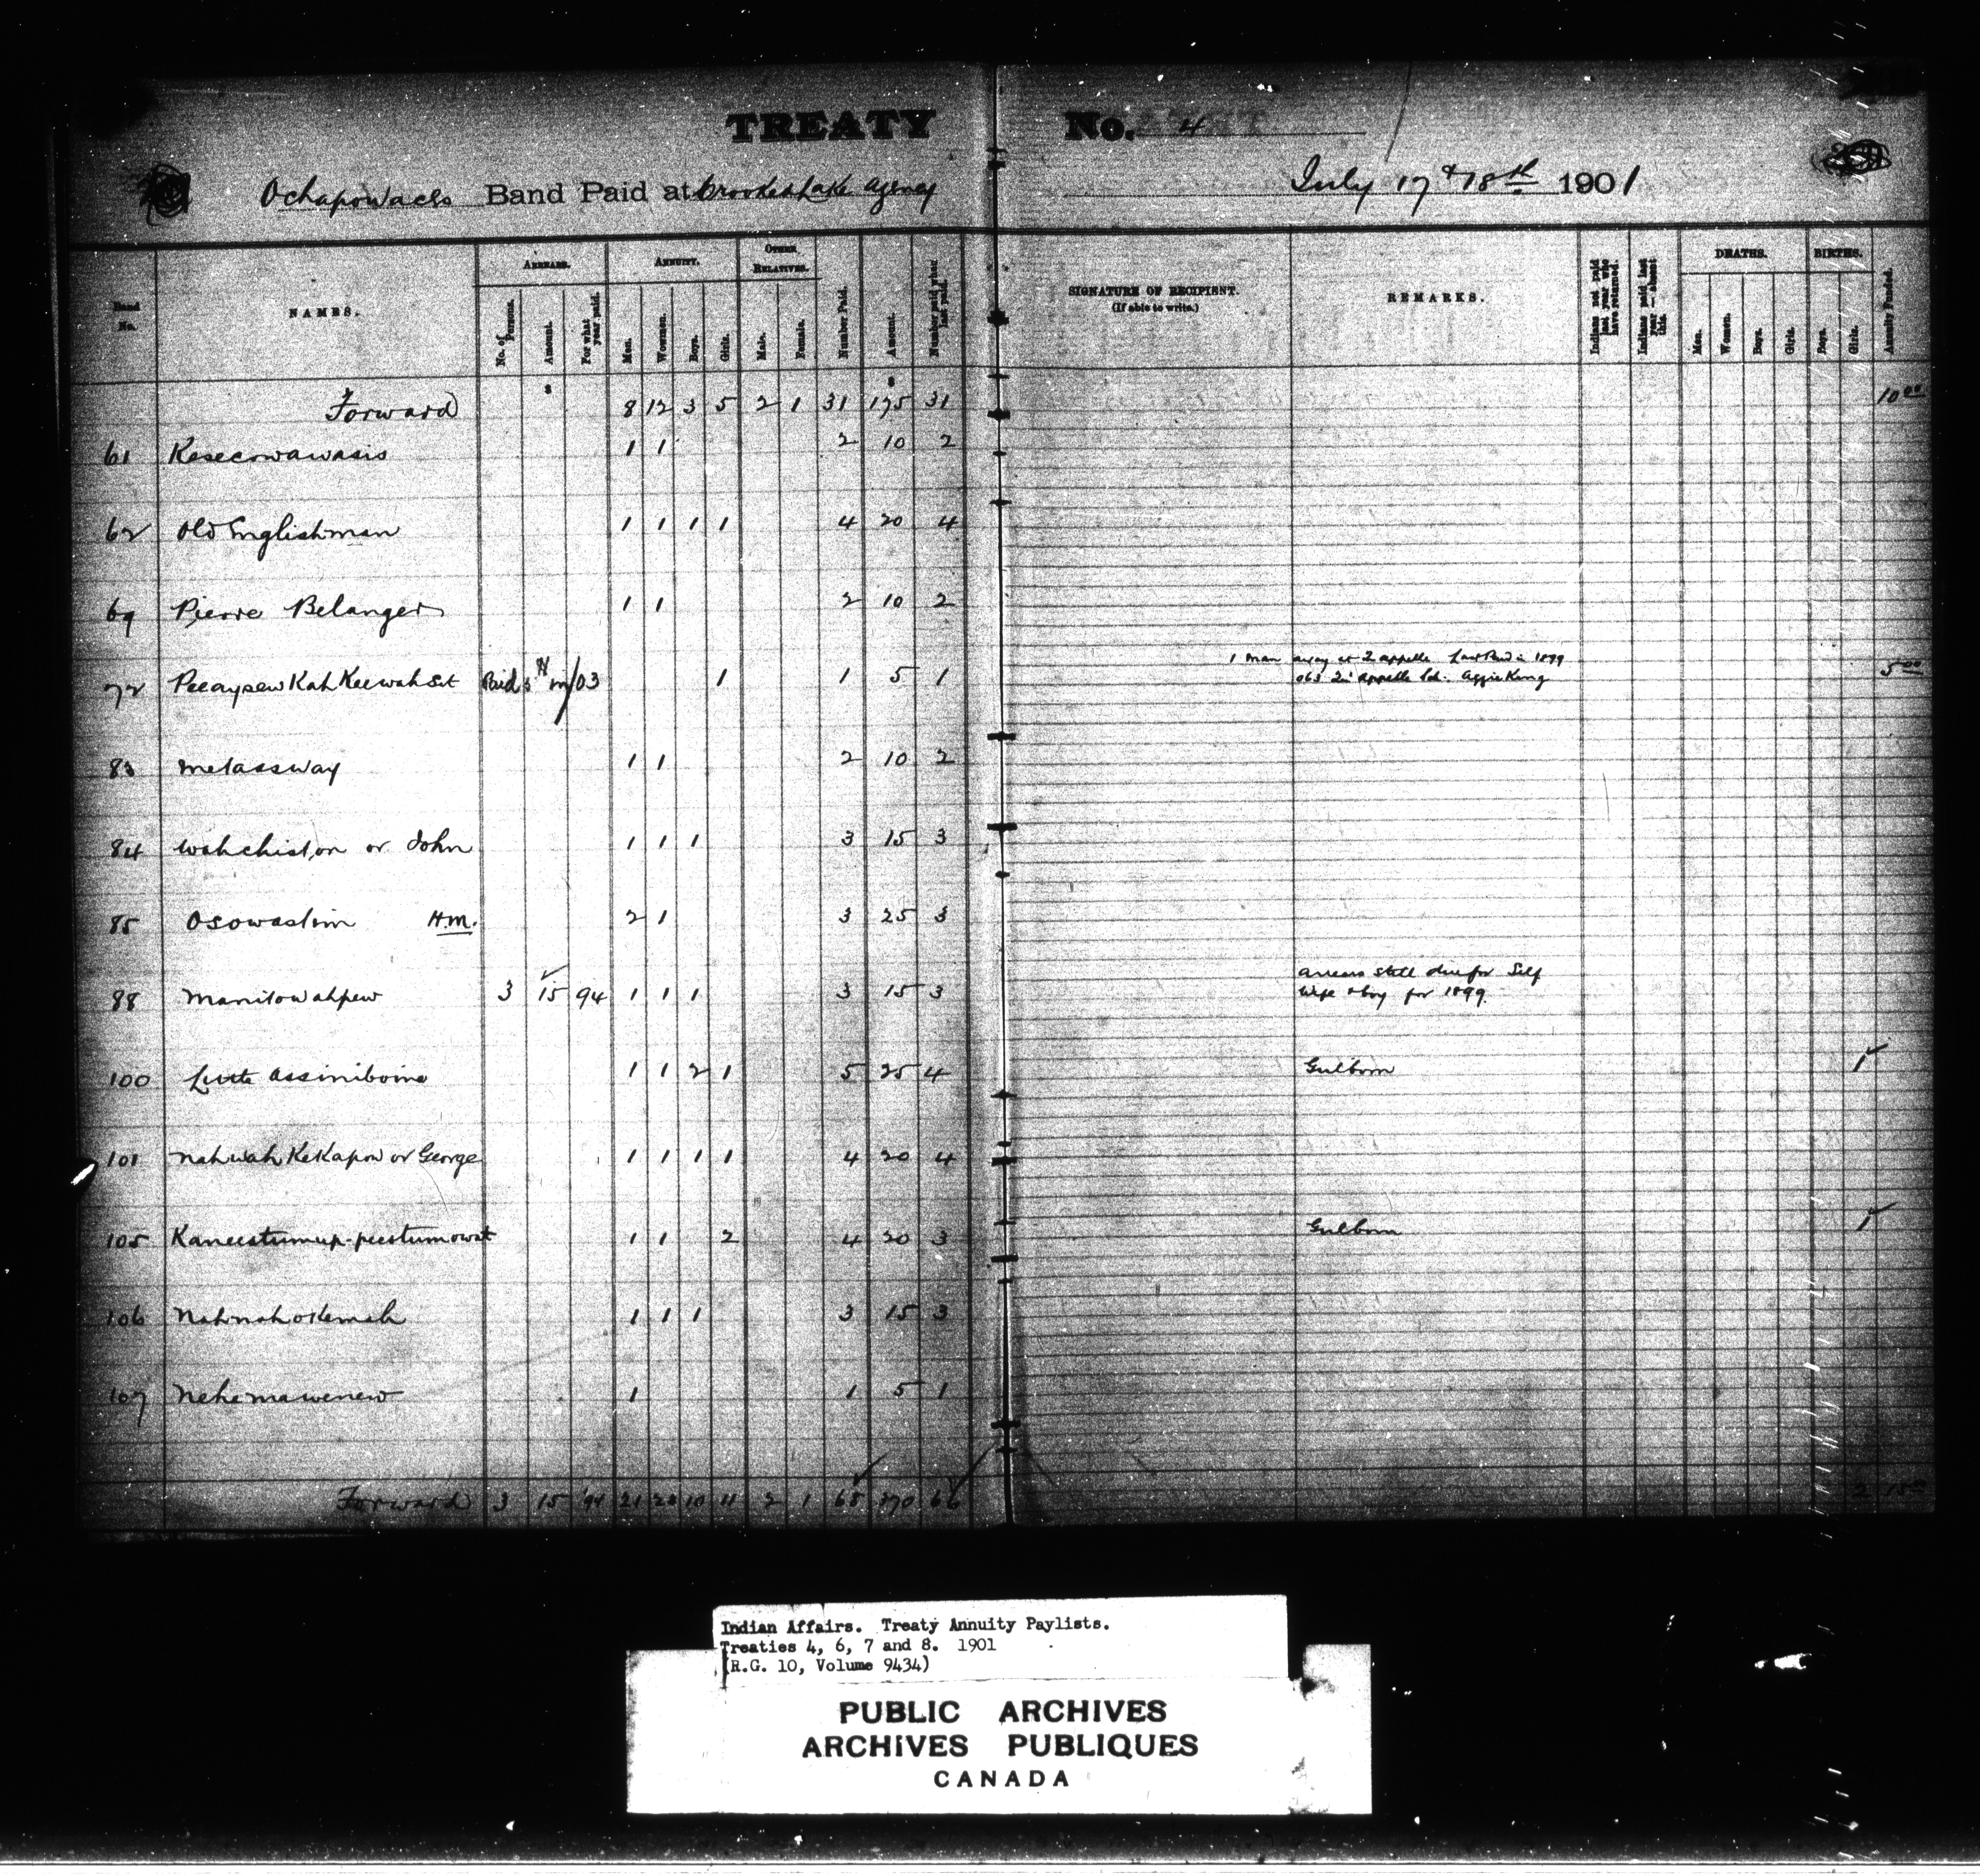 TREATY No. 4
Ochapowaces Band Paid at Crooked Lake Agency July 17 & 18th 1901
Band No.
NAMES.
ARREARS.
No. of Persons.
Amount.
For what year paid.
ANNUITY.
Men.
Women.
Boys.
Girls.
OTHER RELATIVES.
Male.
Female.
Number Paid.
Amount.
Number paid when last paid.
SIGNATURE OF RECIPIENT.
(If able to write.)
REMARKS.
Indians not paid last year who have returned.
Indians paid last year — absent this.
DEATHS.
Men.
Women.
Boys.
Girls.
BIRTHS.
Boys.
Girls.
Annuity Funded.
Forward 8 12 3 5 2 1 31 175 31 10 00
61 Kesecowawasis 1 1 2 10 2
62 Old Englishman 1 1 1 1 4 20 4
69 Pierre Belanger 1 1 2 10 2
1 man away at Qappelle Last Paid in 1899
72 Peeaypew Kah Keewah Sit Paid 5 in/03 1 1 5 1 063 Qu'appelle Ind. Aggie King 5 00
83 Metassway 1 1 2 10 2
84 Wahchiston or John 1 1 1 3 15 3
85 Osowastim H.M. 2 1 3 25 3
arrears still due for Self
88 Manitowahpew 3 15 94 1 1 1 3 15 3 Wife & boy for 1899.
100 Little Assiniboine 1 1 2 1 5 25 4 Girl born 1
101 Nahwah Kekapow or George 1 1 1 1 4 20 4
105 Kaneestumup-peestumowat 1 1 2 4 20 3 Girl born 1
106 Nahnahokemah 1 1 1 3 15 3
107 Nehemawenew 1 1 5 1
Forward 3 15 '94 21 23 10 11 2 1 68 370 66 2 15 00
Indian Affairs. Treaty Annuity Paylists.
Treaties 4, 6, 7 and 8. 1901
(R.G. 10, Volume 9434)
PUBLIC ARCHIVES
ARCHIVES PUBLIQUES
CANADA